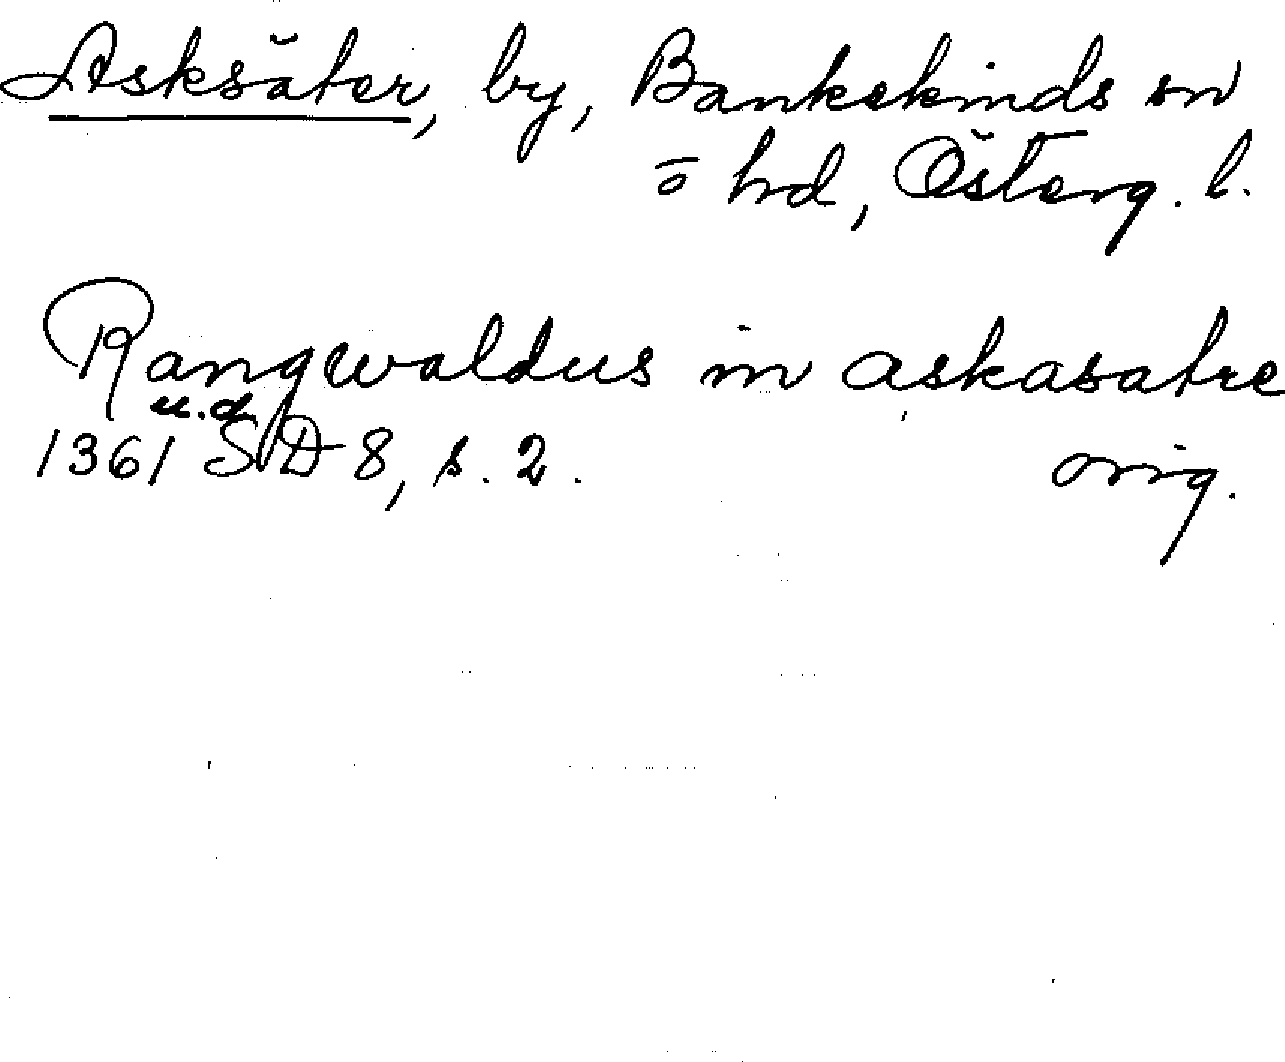 Asksäter, by, Bankekinds sn
o hd, Österg. l.
Rangwaldus in askasatre
u.d.
1361 SD 8, s. 2. orig.